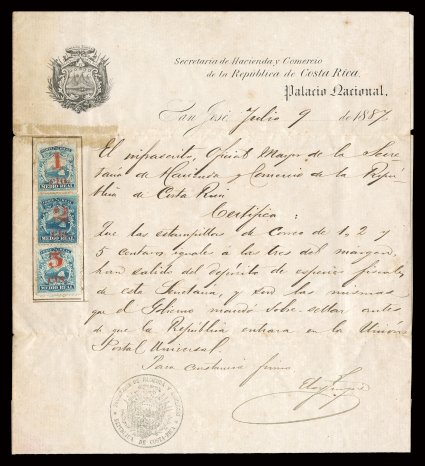 Secretaria de Hacienda y Comercio
de la República de Costa Rica.
Palacio Nacional.
San José, Julio 9 de 1887.
El infrascrito, Oficial Mayor de la Secre
taria de Hacienda y Comercio de la Repú
blica de Costa Rica
Certifica:
Que las estampillas de Correo de 1, 2 y
5 centavos iguales a las tres del márgen,
han salido del depósito de especies fiscales
de esta Secretaria, y son las mismas
que el Gobierno mandó sobre-sellar antes
de que la República entrara en la Union
Postal Universal.
Para constancia firmo
1
MEDIO REAL
2
MEDIO REAL
5
MEDIO REAL
SECRETARIA DE HACIENDA Y COMERCIO
REPUBLICA DE COSTA-RICA